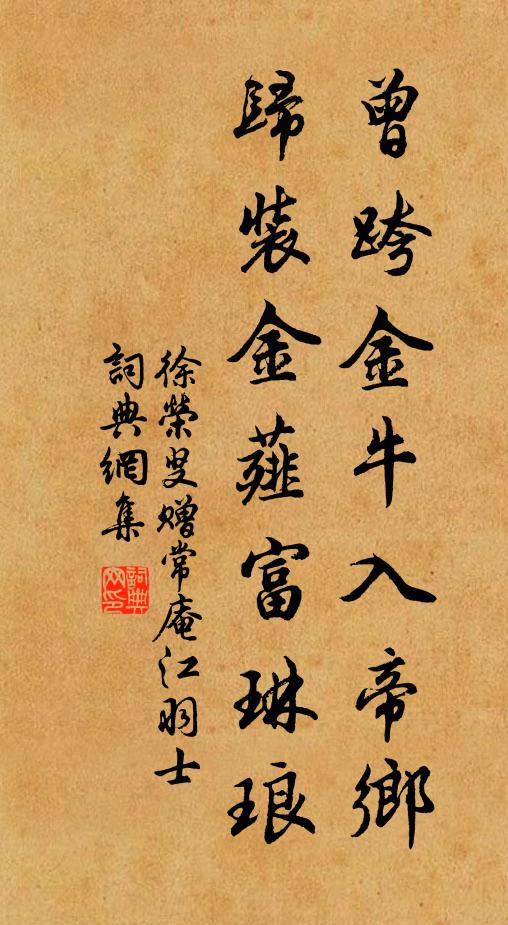 曾跨金牛入帝鄉
歸裝金薤富琳琅
徐榮叟贈常庵江羽士
詞典網集
詞典网印